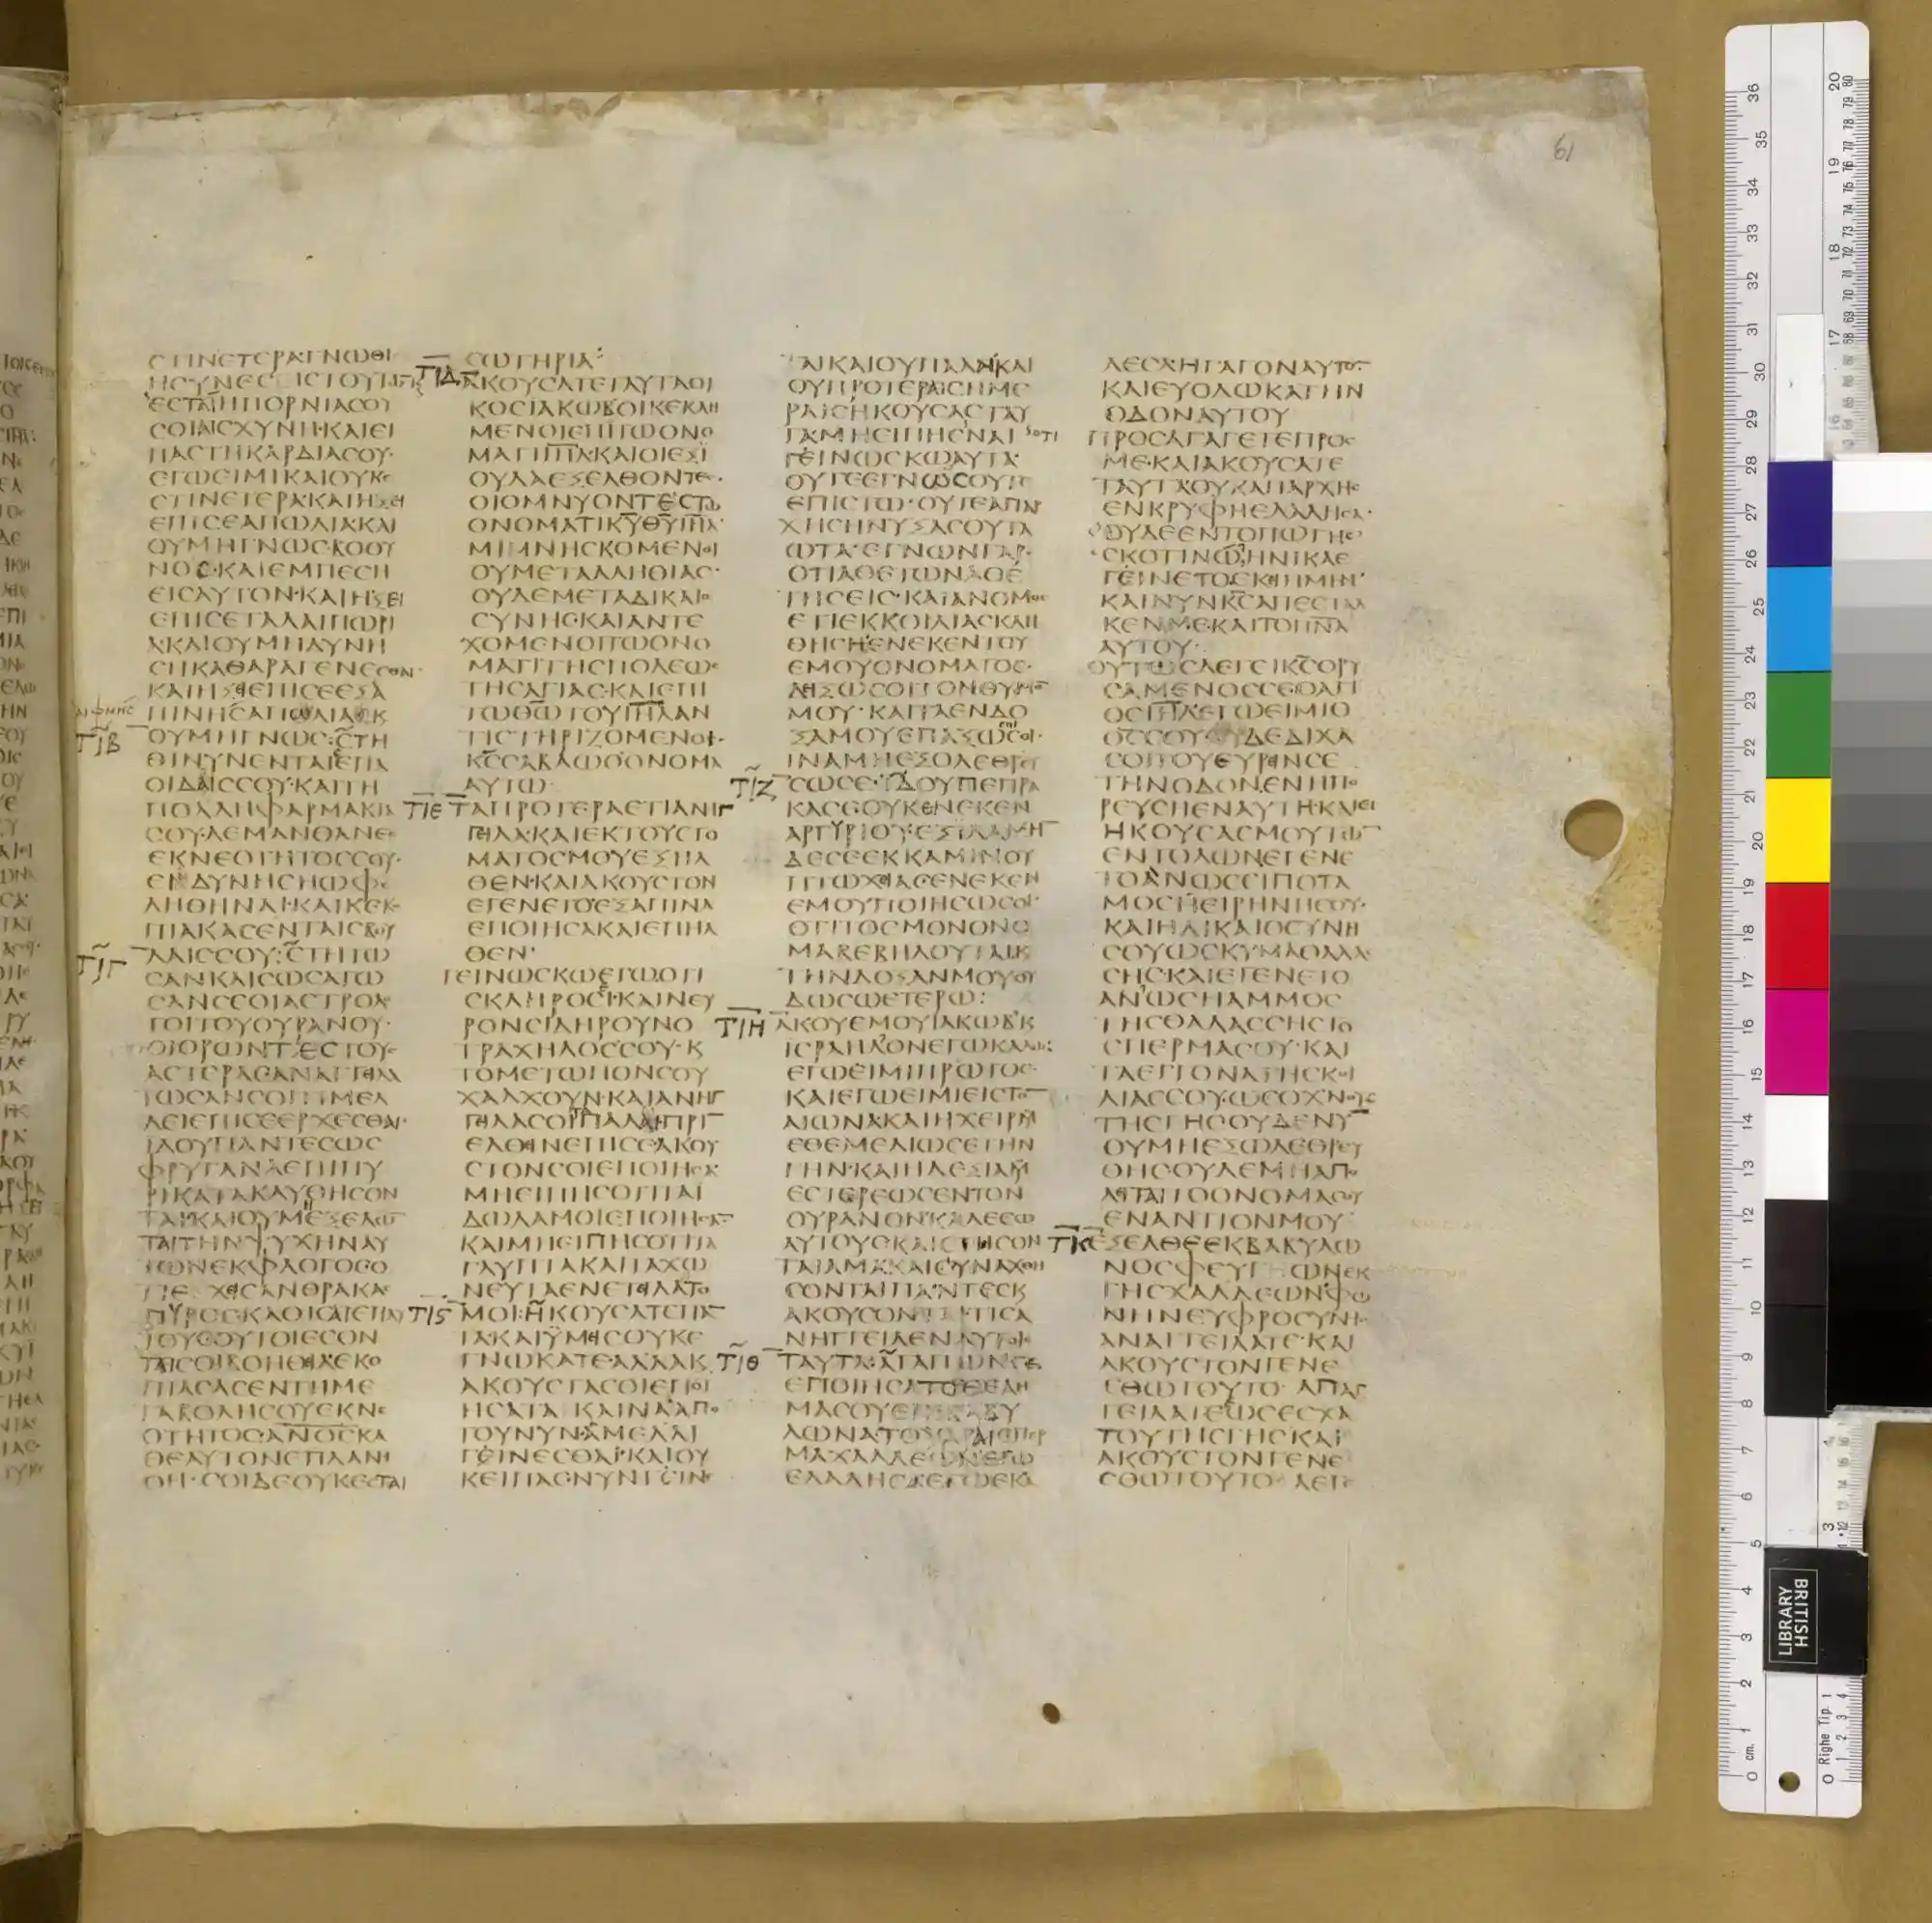 61
ϹΤΙΝΕΤΕΡΑΓΝΩΘΙ
ΕϹΤΑΙΗΠΟΡΝΙΑϹΟΥ
ϹΟΙΑΙϹΧΥΝΗ·ΚΑΙΕΙ
ΠΑϹΤΗΚΑΡΔΙΑϹΟΥ·
ΕΓΩΕΙΜΙΚΑΙΟΥΚΕ
ϹΤΙΝΕΤΕΡΑ·ΚΑΙΗΞΕΙ
ΕΠΙϹΕΑΠΩΛΙΑΚΑΙ
ΟΥΜΗΓΝΩϹ·ΒΟΘΥ
ΝΟϹ·ΚΑΙΕΜΠΕϹΗ
ΕΙϹΑΥΤΟΝ·ΚΑΙΗΞΕΙ
ΕΠΙϹΕΤΑΛΑΙΠΩΡΙ
Α·ΚΑΙΟΥΜΗΔΥΝΗ
ϹΗΚΑΘΑΡΑΓΕΝΕϹΘΑΙ·
ΚΑΙΗΞΕΙΕΠΙϹΕΕΞΑ
ΠΙΝΗϹΑΠΩΛΙΑΚ
ΤΙΒ ΟΥΜΗΓΝΩϹ:ϹΤΗ
ΘΙΝΥΝΕΝΤΑΙϹΕΠΑ
ΟΙΔΑΙϹϹΟΥ·ΚΑΙΤΗ
ΠΟΛΛΗΦΑΡΜΑΚΙΑ
ϹΟΥ·ΑΕΜΑΝΘΑΝΕϹ
ΕΚΝΕΟΤΗΤΟϹϹΟΥ·
ΕΙΔΥΝΗϹΗΩΦΕ
ΛΗΘΗΝΑΙ·ΚΑΙΚΕΚΟ
ΠΙΑΚΑϹΕΝΤΑΙϹΒΟΥ
ΤΙΓ ΛΑΙϹϹΟΥ:ϹΤΗΤΩ
ϹΑΝΚΑΙϹΩϹΑΤΩ
ϹΑΝϹΕΟΙΑϹΤΡΟΛΟ
ΓΟΙΤΟΥΟΥΡΑΝΟΥ·
ΟΙΟΡΩΝΤΕϹΤΟΥϹ
ΑϹΤΕΡΑϹΑΝΑΓΓΕΙΛΑ
ΤΩϹΑΝϹΟΙΤΙΜΕΛ
ΛΕΙΕΠΙϹΕΕΡΧΕϹΘΑΙ·
ΙΔΟΥΠΑΝΤΕϹΩϹ
ΦΡΥΓΑΝΑΕΠΙΠΥ
ΡΙΚΑΤΑΚΑΥΘΗϹΟΝ
ΤΑΙ·ΚΑΙΟΥΜΗΕΞΕΛΩ
ΤΑΙΤΗΝΨΥΧΗΝΑΥ
ΤΩΝΕΚΦΛΟΓΟϹΟ
ΤΙΕΧΕΙϹΑΝΘΡΑΚΑϹ
ΠΥΡΟϹ·ΚΑΘΙϹΑΙΕΠΑΥ
ΤΟΥϹΟΥΤΟΙΕϹΟΝ
ΤΑΙϹΟΙΒΟΗΘΕΙΑΕΚΟ
ΠΙΑϹΑϹΕΝΤΗΜΕ
ΤΑΒΟΛΗϹΟΥΕΚΝΕ
ΟΤΗΤΟϹΑΝΟϹΚΑ
ΘΕΑΥΤΟΝΕΠΛΑΝΗ
ΘΗ·ϹΟΙΔΕΟΥΚΕϹΤΑΙ
ϹΩΤΗΡΙΑ:
ΤΙΔ ΑΚΟΥϹΑΤΕΤΑΥΤΑΟΙ
ΚΟϹΙΑΚΩΒΟΙΚΕΚΛΗ
ΜΕΝΟΙΕΠΙΤΩΟΝΟ
ΜΑΤΙΙΗΛ·ΚΑΙΟΙΕΞΙ
ΟΥΔΑΕΞΕΛΘΟΝΤΕϹ·
ΟΙΟΜΝΥΟΝΤΕϹΤΩ
ΟΝΟΜΑΤΙΚΥΘΥΙΗΛ·
ΜΙΜΝΗϹΚΟΜΕΝΟΙ
ΟΥΜΕΤΑΑΛΗΘΙΑϹ·
ΟΥΔΕΜΕΤΑΔΙΚΑΙΟ
ϹΥΝΗϹ·ΚΑΙΑΝΤΕ
ΧΟΜΕΝΟΙΤΩΟΝΟ
ΜΑΤΙΤΗϹΠΟΛΕΩϹ
ΤΗϹΑΓΙΑϹ·ΚΑΙΕΠΙ
ΤΩΘΩΤΟΥΙΗΛΑΝ
ΤΙϹΤΗΡΙΖΟΜΕΝΟΙ·
ΚϹϹΑΒΑΩΘΟΝΟΜΑ
ΑΥΤΩ
ΤΙΕ ΤΑΠΡΟΤΕΡΑΕΤΙΑΝΗΓ
ΓΕΙΛΑ·ΚΑΙΕΚΤΟΥϹΤΟ
ΜΑΤΟϹΜΟΥΕΞΗΛ
ΘΕΝ·ΚΑΙΑΚΟΥϹΤΟΝ
ΕΓΕΝΕΤΟΕΞΑΠΙΝΑ
ΕΠΟΙΗϹΑΚΑΙΕΠΗΛ
ΘΕΝ·
ΓΕΙΝΩϹΚΩΕΓΩΟΤΙ
ϹΚΛΗΡΟϹΕΙ·ΚΑΙΝΕΥ
ΡΟΝϹΙΔΗΡΟΥΝΟ
ΤΡΑΧΗΛΟϹϹΟΥ·Κ
ΤΟΜΕΤΩΠΟΝϹΟΥ
ΧΑΛΧΟΥΝ·ΚΑΙΑΝΗΓ
ΓΕΙΛΑϹΟΙΤΑΠΑΛΑΙ·ΠΡΙΝ
ΕΛΘΕΙΝΕΠΙϹΕ·ΑΚΟΥ
ϹΤΟΝϹΟΙΕΠΟΙΗϹΑ·
ΜΗΕΙΠΗϹΟΤΙΤΑΙ
ΔΩΛΑΜΟΙΕΠΟΙΗϹΑΝ·
ΚΑΙΜΗΕΙΠΗϹΟΤΙΤΑ
ΓΛΥΠΤΑΚΑΙΤΑΧΩ
ΝΕΥΤΑΕΝΕΤΕΙΛΑΤΟ
ΤΙϚ ΜΟΙ:ΗΚΟΥϹΑΤΕΠΑΝ
ΤΑ·ΚΑΙΥΜΕΙϹΟΥΚΕ
ΓΝΩΚΑΤΕ·ΑΛΛΑΚ
ΑΚΟΥϹΤΑϹΟΙΕΠΟΙ
ΗϹΑΤΑΚΑΙΝΑΑΠΟ
ΤΟΥΝΥΝ·ΑΜΕΛΛΙ
ΓΕΙΝΕϹΘΑΙ·ΚΑΙΟΥ
ΚΕΙΠΑϹ·ΝΥΝΓΕΙΝΕ
ΤΑΙΚΑΙΟΥΠΑΛΑΙ·ΚΑΙ
ΟΥΠΡΟΤΕΡΑΙϹΗΜΕ
ΡΑΙϹΗΚΟΥϹΑϹΤΑΥ
ΤΑΜΗΕΙΠΗϹΝΑΙ ΟΤΙ
ΓΕΙΝΩϹΚΩΑΥΤΑ·
ΟΥΤΕΕΓΝΩϹΟΥΤΕ
ΕΠΙϹΤΩ·ΟΥΤΕΑΠΑΡ
ΧΗϹΗΝΥΞΑϹΟΥΤΑ
ΩΤΑ·ΕΓΝΩΝΓΑΡ·
ΟΤΙΑΘΕΤΩΝΑΘΕ
ΤΗϹΕΙϹ·ΚΑΙΑΝΟΜΟϹ
ΕΤΙΕΚΚΟΙΛΙΑϹΚΛΗ
ΘΗϹΗ·ΕΝΕΚΕΝΤΟΥ
ΕΜΟΥΟΝΟΜΑΤΟϹ·
ΔΕΙΞΩϹΟΙΤΟΝΘΥΜΟΝ
ΜΟΥ·ΚΑΙΤΑΕΝΔΟ
ΞΑΜΟΥΕΠΑΞΩΕΠΙϹΟΙ·
ΙΝΑΜΗΕΞΟΛΕΘΡΕΥ
ΤΙΖ ϹΩϹΕ·ΙΔΟΥΠΕΠΡΑ
ΚΑϹΕΟΥΚΕΝΕΚΕΝ
ΑΡΓΥΡΙΟΥ:ΕΞΙΛΑΜΗΝ
ΔΕϹΕΕΚΚΑΜΙΝΟΥ
ΠΤΩΧΕΙΑϹΕΝΕΚΕΝ
ΕΜΟΥΠΟΙΗϹΩϹΟΙ·
ΟΤΙΤΟΕΜΟΝΟΝΟ
ΜΑΒΕΒΗΛΟΥΤΑΙ·Κ
ΤΗΝΔΟΞΑΝΜΟΥΟΥ
ΔΩϹΩΕΤΕΡΩ:
ΤΙΗ ΑΚΟΥΕΜΟΥΙΑΚΩΒ·Κ
ΙϹΡΑΗΛΟΝΕΓΩΚΑΛΩ:
ΕΓΩΕΙΜΙΠΡΩΤΟϹ·
ΚΑΙΕΓΩΕΙΜΙΕΙϹΤΟΝ
ΑΙΩΝΑ·ΚΑΙΗΧΕΙΡΜΟΥ
ΕΘΕΜΕΛΙΩϹΕΤΗΝ
ΓΗΝ·ΚΑΙΗΔΕΞΙΑΜΟΥ
ΕϹΤΕΡΕΩϹΕΝΤΟΝ
ΟΥΡΑΝΟΝ·ΚΑΛΕϹΩ
ΑΥΤΟΥϹΚΑΙϹΤΗϹΟΝ
ΤΑΙΑΜΑ·ΚΑΙϹΥΝΑΧΘΗ
ϹΟΝΤΑΙΠΑΝΤΕϹΚ
ΑΚΟΥϹΟΝΤΑΙ·ΤΙϹΑ
ΝΗΓΓΕΙΛΕΝΑΥΤΟΙϹ
ΤΙΘ ΤΑΥΤΑ:ΑΓΑΠΩΝϹΕ
ΕΠΟΙΗϹΑΤΟΘΕΛΗ
ΛΕϹΑ·ΗΓΑΓΟΝΑΥΤΟΝ·
ΚΑΙΕΥΟΔΩΚΑΤΗΝ
ΟΔΟΝΑΥΤΟΥ
ΠΡΟϹΑΓΑΓΕΤΕΠΡΟϹ
ΜΕ·ΚΑΙΑΚΟΥϹΑΤΕ
ΤΑΥΤΑΟΥΚΑΠΑΡΧΗϹ
ΕΝΚΡΥΦΗΕΛΑΛΗϹΑ·
ΟΥΔΕΕΝΤΟΠΩΓΗϹ
ϹΚΟΤΙΝΩ·ΗΝΙΚΑΕ
ΓΕΙΝΕΤΟΕΚΕΙΗΜΗΝ·
ΚΑΙΝΥΝΚϹΑΠΕϹΤΑΛ
ΚΕΝΜΕ·ΚΑΙΤΟΠΝΑ
ΑΥΤΟΥ·
ΟΥΤΩϹΛΕΓΕΙΚϹΟΡΥ
ϹΑΜΕΝΟϹϹΕΟΑΓΙ
ΟϹΙΗΛ·ΕΓΩΕΙΜΙΟ
ΘϹϹΟΥ ΔΕΔΙΧΑ
ϹΟΙΤΟΥΕΥΡΕΙΝϹΕ
ΤΗΝΟΔΟΝ·ΕΝΗΠΟ
ΡΕΥϹΗΕΝΑΥΤΗ·ΚΑΙΕΙ
ΗΚΟΥϹΑϹΜΟΥΤΩΝ
ΕΝΤΟΛΩΝΕΓΕΝΕ
ΤΟΑΝΩϹΕΙΠΟΤΑ
ΜΟϹΗΕΙΡΗΝΗϹΟΥ·
ΚΑΙΗΔΙΚΑΙΟϹΥΝΗ
ϹΟΥΩϹΚΥΜΑΘΑΛΑϹ
ϹΗϹ·ΚΑΙΕΓΕΝΕΤΟ
ΑΝΩϹΗΑΜΜΟϹ
ΤΗϹΘΑΛΑϹϹΗϹΤΟ
ϹΠΕΡΜΑϹΟΥ·ΚΑΙ
ΤΑΕΓΓΟΝΑΤΗϹΚΟΙ
ΛΙΑϹϹΟΥ·ΩϹΟΧΝΟΥϹ
ΤΗϹΓΗϹΟΥΔΕΝΥΝ
ΟΥΜΗΕΞΩΛΕΘΡΕΥ
ΘΗϹΟΥΔΕΜΗΑΠΟ
ΛΕΙΤΑΙΤΟΟΝΟΜΑϹΟΥ
ΕΝΑΝΤΙΟΝΜΟΥ
ΤΚ ΕΞΕΛΘΕΕΚΒΑΒΥΛΩ
ΝΟϹΦΕΥΓΩΝΕΚ
ΓΗϹΧΑΛΔΕΩΝΦΩ
ΝΗΝΕΥΦΡΟϹΥΝΗϹ
ΑΝΑΓΓΕΙΛΑΤΕ·ΚΑΙ
ΑΚΟΥϹΤΟΝΓΕΝΕ
ϹΘΩΤΟΥΤΟ·ΑΠΑΓ
ΓΕΙΛΑΤΕΕΩϹΕϹΧΑ
ΤΟΥΤΗϹΓΗϹΚΑΙ
ΑΚΟΥϹΤΟΝΓΕΝΕ
ϹΘΩΤΟΥΤΟ·ΛΕΓΕ
BRITISH
LIBRARY